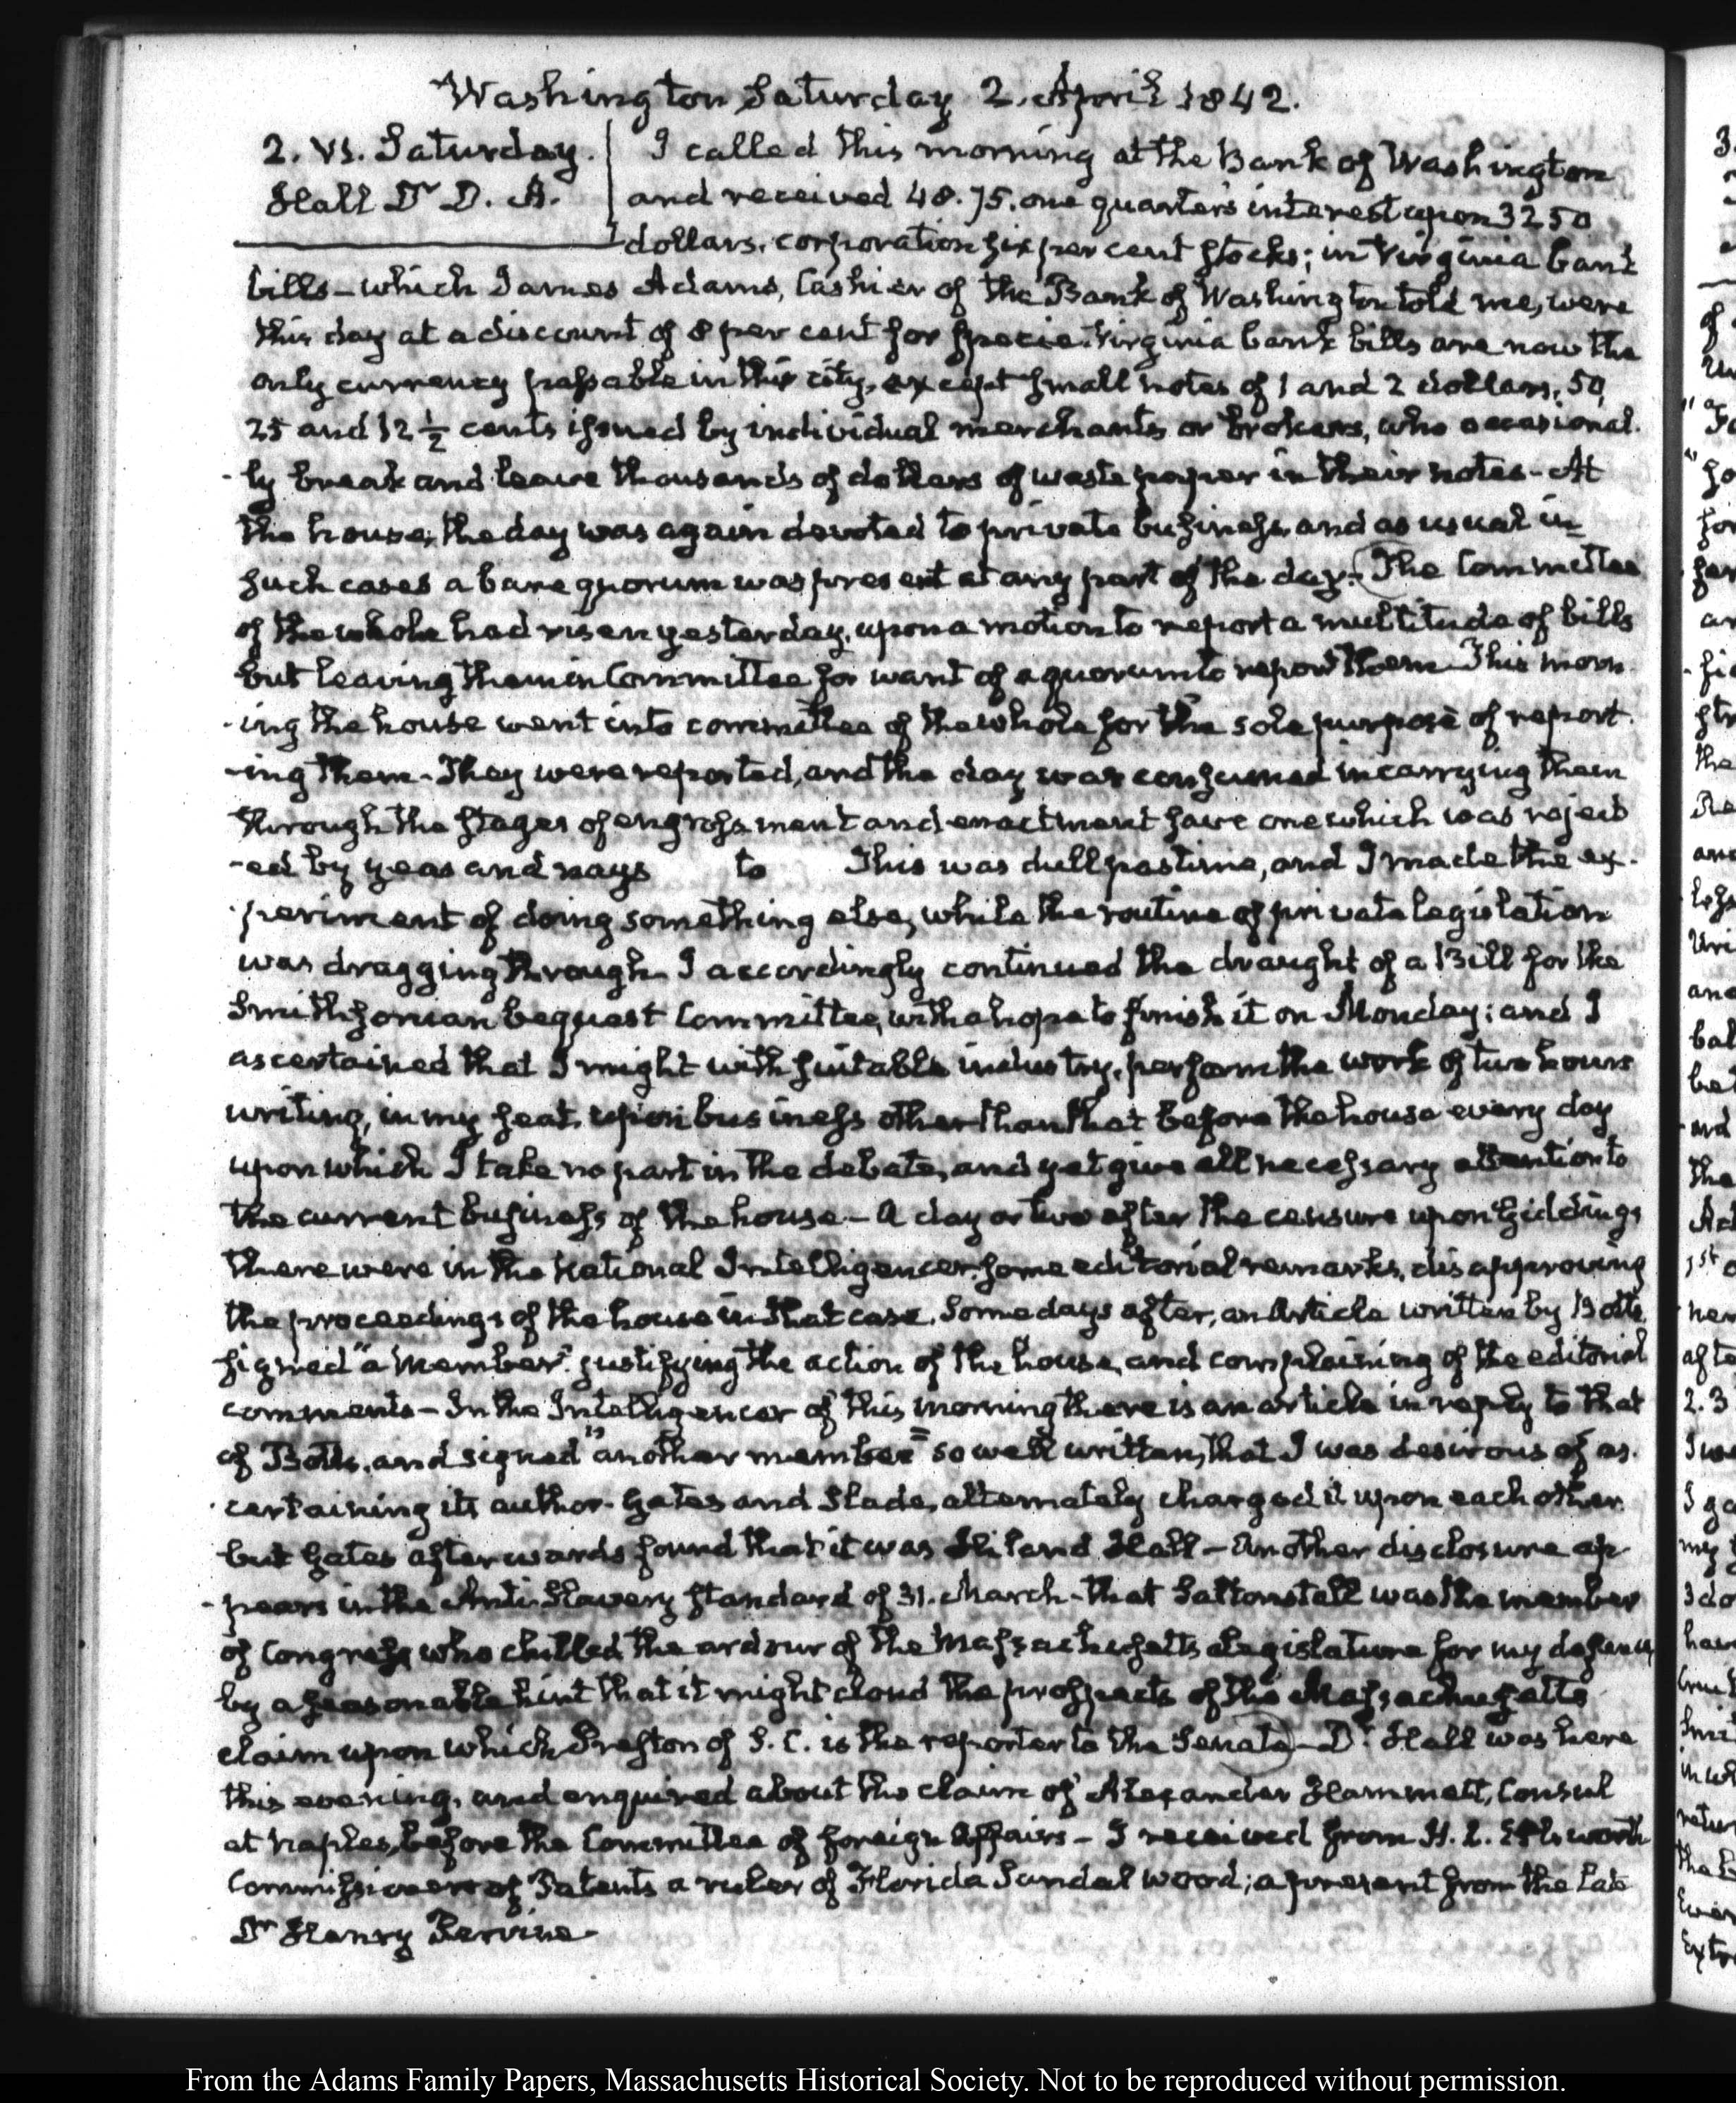 Washington Saturday 2. April 1842.
2. VI. Saturday.
Hall Dr D. A.
I called this morning at the Bank of Washington
and received 48.75. one quarter's interest upon 3250
dollars. corporation six per cent stocks; in Virginia bank
bills — which James Adams, Cashier of the Bank of Washington told me, were
this day at a discount of 8 per cent for specie. Virginia bank bills are now the
only currency passable in this city, except small notes of 1 and 2 dollars, 50,
25 and 12 ½ cents issued by individual merchants or brokers, who occasional-
-ly break and leave thousands of dollars of waste paper in their notes — At
the house, the day was again devoted to private business, and as usual in
such cases a bare quorum was present at any part of the day. The Committee
of the whole had risen yesterday, upon a motion to report a multitude of bills
but leaving them in Committee for want of a quorum to report them This morn-
-ing the house went into committee of the whole for the sole purpose of report-
-ing them. They were reported, and the day was consumed in carrying them
through the stages of engrossment and enactment save one which was reject-
-ed by yeas and nays to This was dull pastime, and I made the ex-
-periment of doing something else, while the routine of private legislation
was dragging through. I accordingly continued the draught of a Bill for the
Smithsonian bequest Committee, with a hope to finish it on Monday; and I
ascertained that I might with suitable industry, perform the work of two hours
writing, in my seat, upon business other than that before the house every day
upon which I take no part in the debate, and yet give all necessary attention to
the current business of the house — A day or two after the censure upon Giddings
there were in the National Intelligencer, some editorial remarks, disapproving
the proceedings of the house in that case. Some days after, an Article written by Botts
signed "a Member" justifying the action of the house, and complaining of the editorial
comments — In the Intelligencer of this morning there is an article in reply to that
of Botts, and signed "another member" so well written, that I was desirous of as-
-certaining its author. Gates and Slade, alternately charged it upon each other
but Gates afterwards found that it was Hiland Hall — Another disclosure ap-
-pears in the Anti-Slavery Standard of 31. March — that Saltonstall was the member
of Congress who chilled the ardour of the Massachusetts Legislature for my defence
by a seasonable hint that it might cloud the prospects of the Massachusetts
claim upon which Preston of S. C. is the reporter to the Senate — Dr. Hall was here
this evening, and enquired about the claim of Alexander Hammett, Consul
at Naples, before the Committee of foreign Affairs — I received from H. L. Ellsworth
Commissioner of Patents a ruler of Florida Sandal wood; a present from the late
Dr Henry Perrine
From the Adams Family Papers, Massachusetts Historical Society. Not to be reproduced without permission.